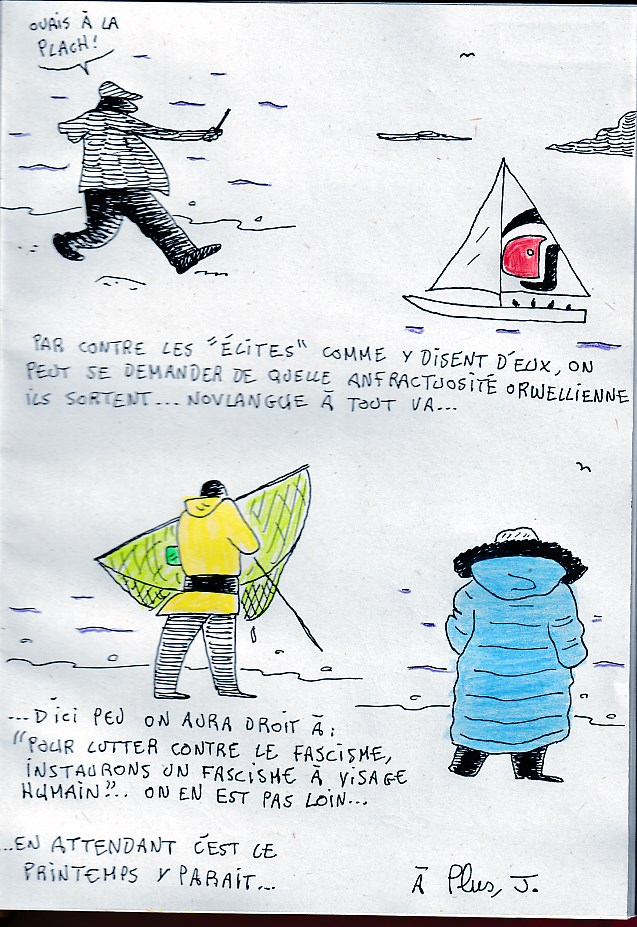 OUAIS À LA
PLACH!
PAR CONTRE LES "ÉLITES" COMME Y DISENT D'EUX, ON
PEUT SE DEMANDER DE QUELLE ANFRACTUOSITÉ ORWELLIENNE
ILS SORTENT... NOVLANGUE À TOUT VA...
...D'ICI PEU ON AURA DROIT À:
"POUR LUTTER CONTRE LE FASCISME,
INSTAURONS UN FASCISME À VISAGE
HUMAIN".. ON EN EST PAS LOIN...
...EN ATTENDANT C'EST LE
PRINTEMPS Y PARAIT...
À Plus, J.